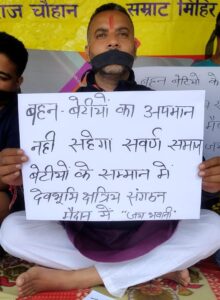 राज चौहान सम्राट मिहिर
बहन-बेटीयों का अपमान
नही सहेगा सवर्ण समाज
बेटीयो के सम्मान में
देवभूमि क्षत्रिय संगठन
मैदान में "जय भवानी"
बहन बेटियो के